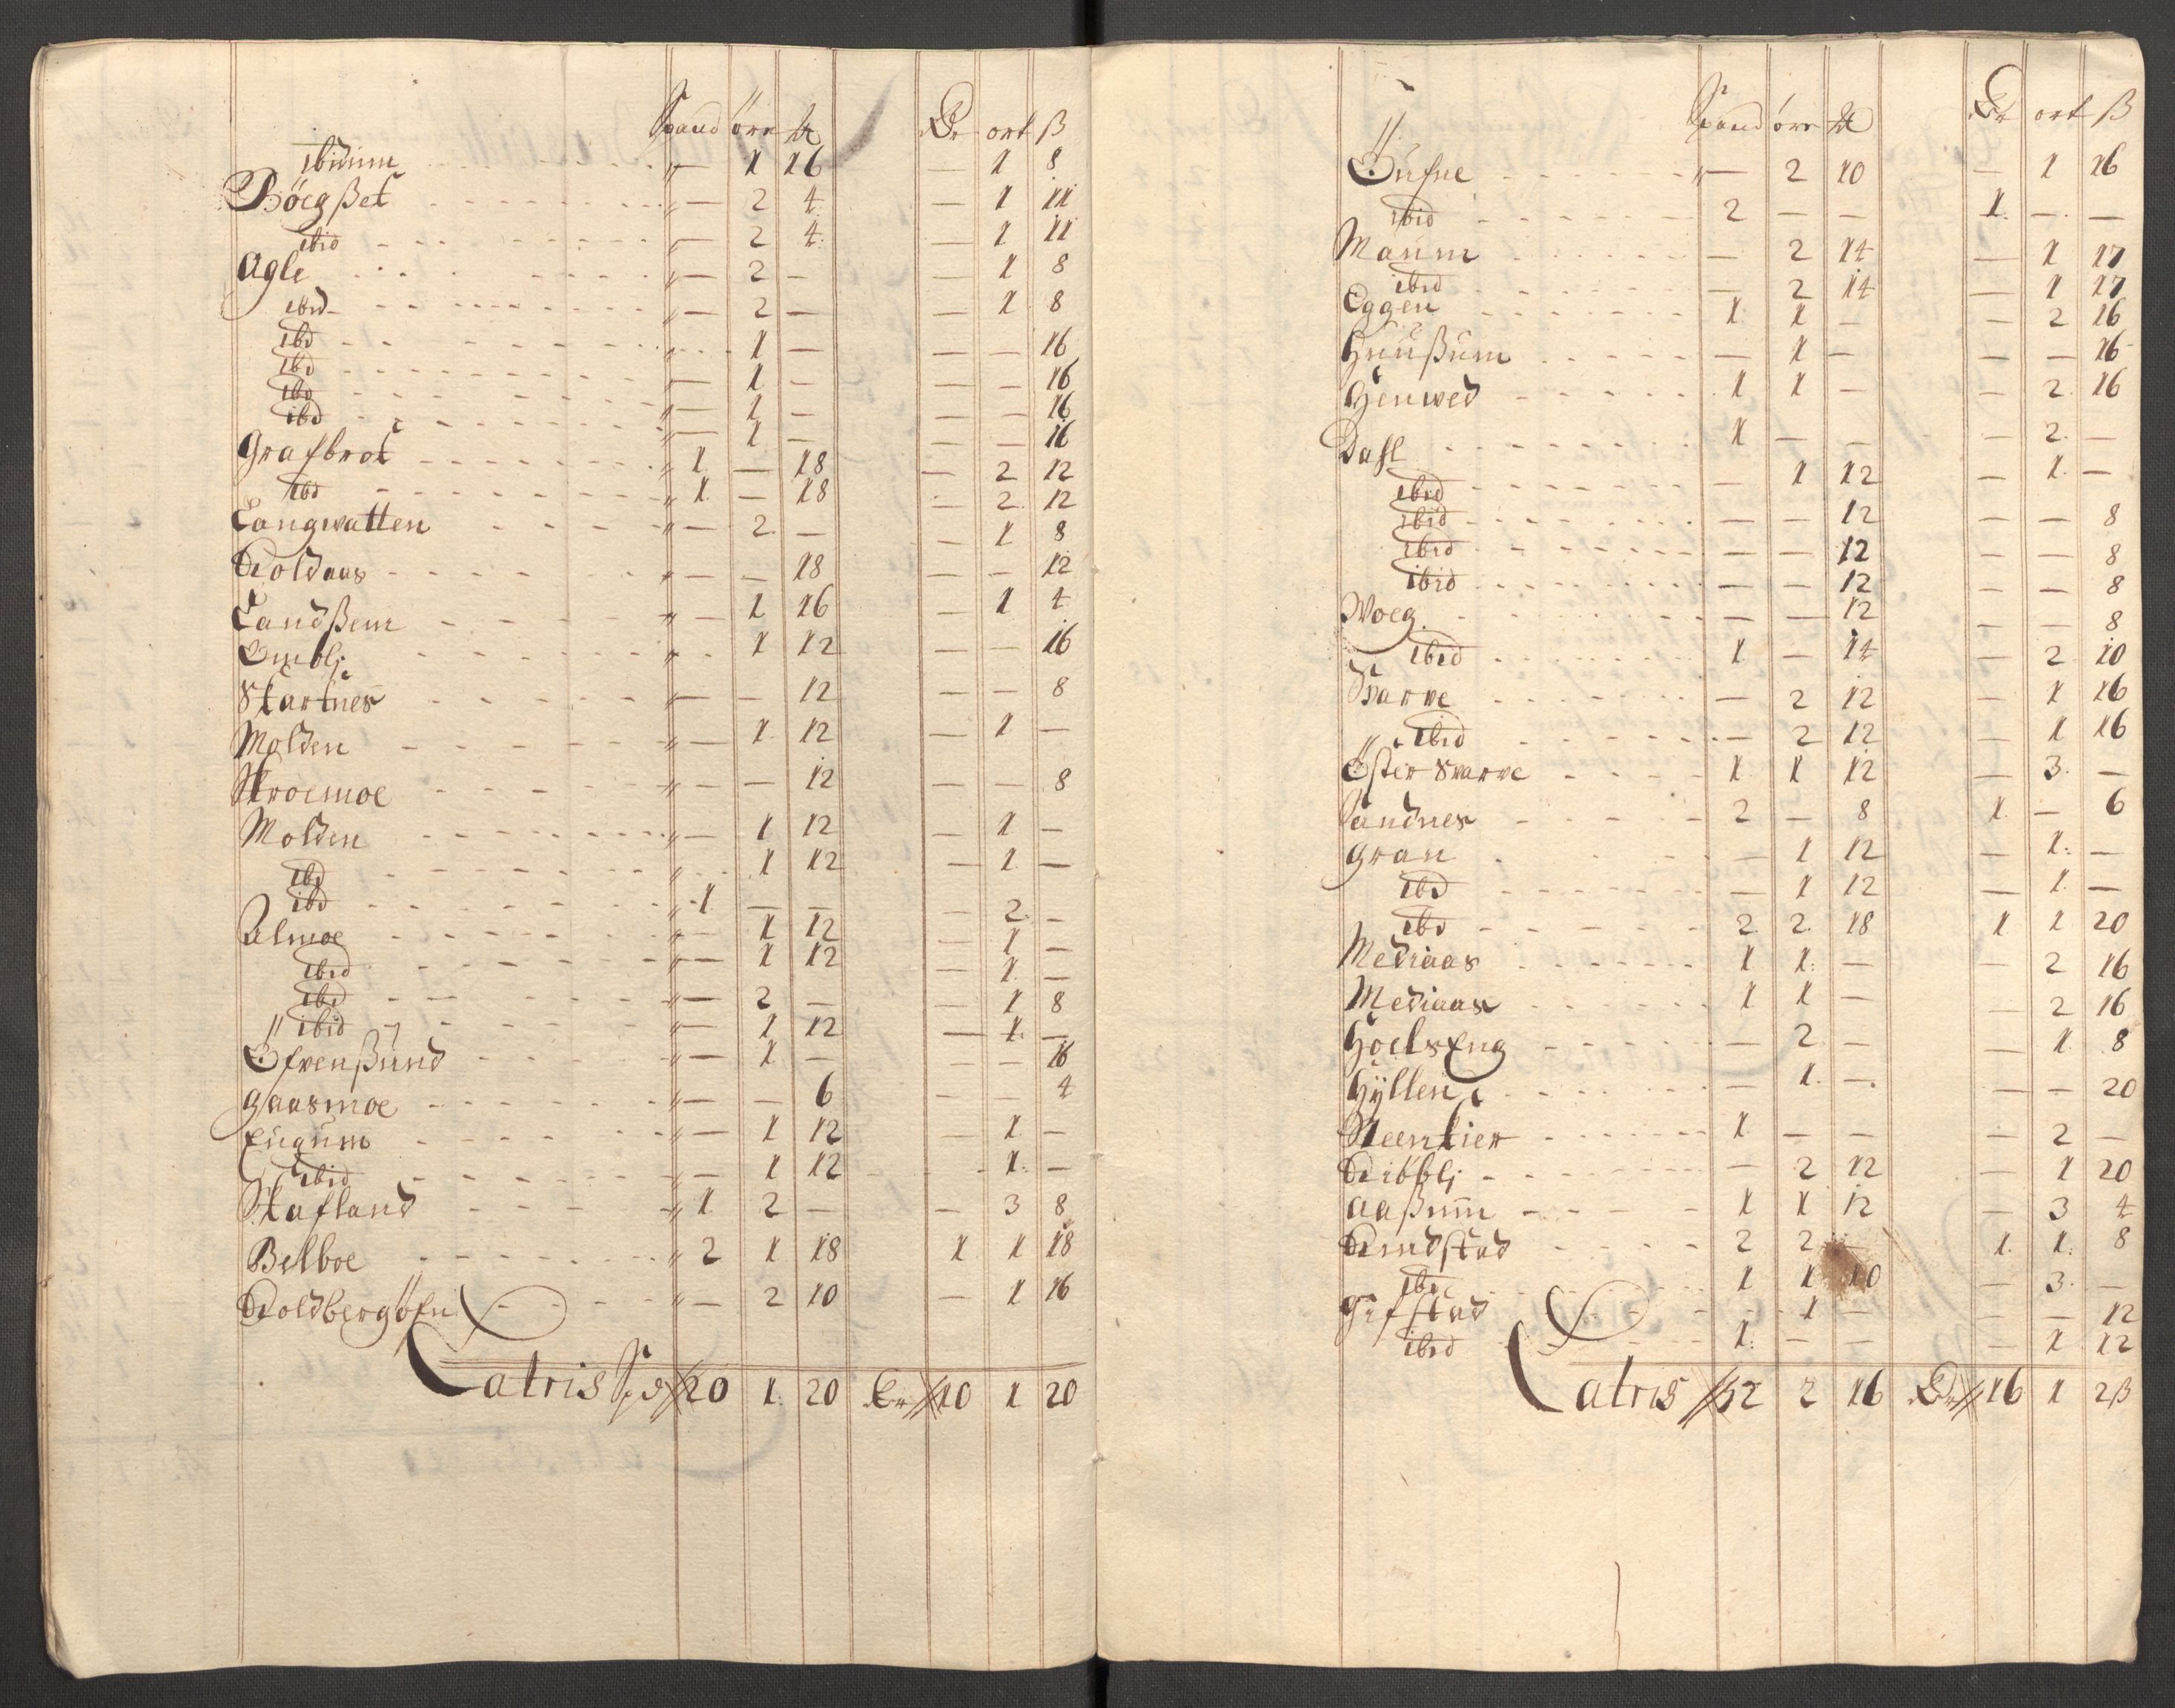 Spand öre mk Dr ort ß
ibidum — 1 16 — 1 8
Böegßet — 2 4 — 1 11
ibid — 2 4 — 1 11
Agle — 2 — — 1 8
ibid — 2 — — 1 8
ibd 1 — — — 16
ibd — 1 — — — 16
ibd — 1 — — — 16
ibd — 1 — — — 16
Grafbrot 1 — 18 — 2 12
ibd 1 — 18 — 2 12
Langwatten — 2 — — 1 8
Roldaas — — 18 — — 12
Landßem — 1 16 — 1 4
Ombli 1 12 — — 16
Skartnes — — 12 — — 8
Molden — 1 12 — 1 —
Stroemoe — — 12 — — 8
Molden — 1 12 — 1 —
ibd 1 12 — 1 —
ibd 1 — — — 2 —
Almoe — 1 12 — 1 —
ibid — 1 12 — 1 —
ibd — 2 — — 1 8
ibid — 1 12 — 1 —
Öfrenßund — 1 — — — 16
Gaasmoe — — 6 — — 4
Fugum — 1 12 — 1 —
ibid — 1 12 1 —
Stafland 1 2 — — 3 8
Belboe 2 1 18 1 1 18
Roldbergöfn — 2 10 — 1 16
Latris Spd 20 1 20 Dr 10 1 20
Spand öre mk Dr ort ß
Öüfne — 2 10 — 1 16
ibid 2 — — 1 — —
Maum — 2 14 — 1 17
ibid — 2 14 — 1 17
Eggen 1 1 — — 2 16
Huußum — 1 — — — 16
Henwed 1 1 — — 2 16
Dahl 1 — — — 2 —
ibid — 1 12 — 1 —
ibid — — 12 — — 8
ibid — — 12 — — 8
ibid — — 12 — — 8
Woeg — — 12 — — 8
ibid 1 — 14 — 2 10
Svarve — 2 12 — 1 16
ibid — 2 12 — 1 16
Öster Svarve 1 1 12 — 3 —
Sandnes 2 — 8 1 — 6
Gran — 1 12 — 1 —
ibd — 1 12 — 1 —
ibd 2 2 18 1 1 20
Mediaas 1 1 — — 2 16
Mediaas 1 1 — — 2 16
Hoelseng — 2 — — 1 8
Hÿllen — 1 — — — 20
Steenkier 1 — — — 2 —
Ribblj — 2 12 — 1 20
Aaßum 1 1 12 — 3 4
Rindstad 2 2 — 1 1 8
ibd 1 1 10 — 3 —
Gifstad 1 — — — 12
ibid 1 — — — 1 12
Latris 32 2 16 Dr 16 1 2ß